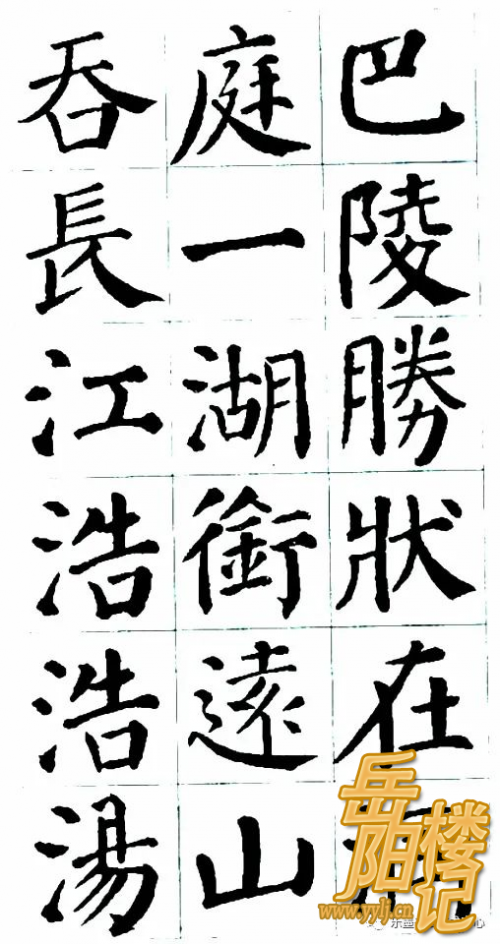 巴陵勝狀在
庭一湖銜遠山
吞長江浩浩湯
岳阳楼记
www.yylj.cn